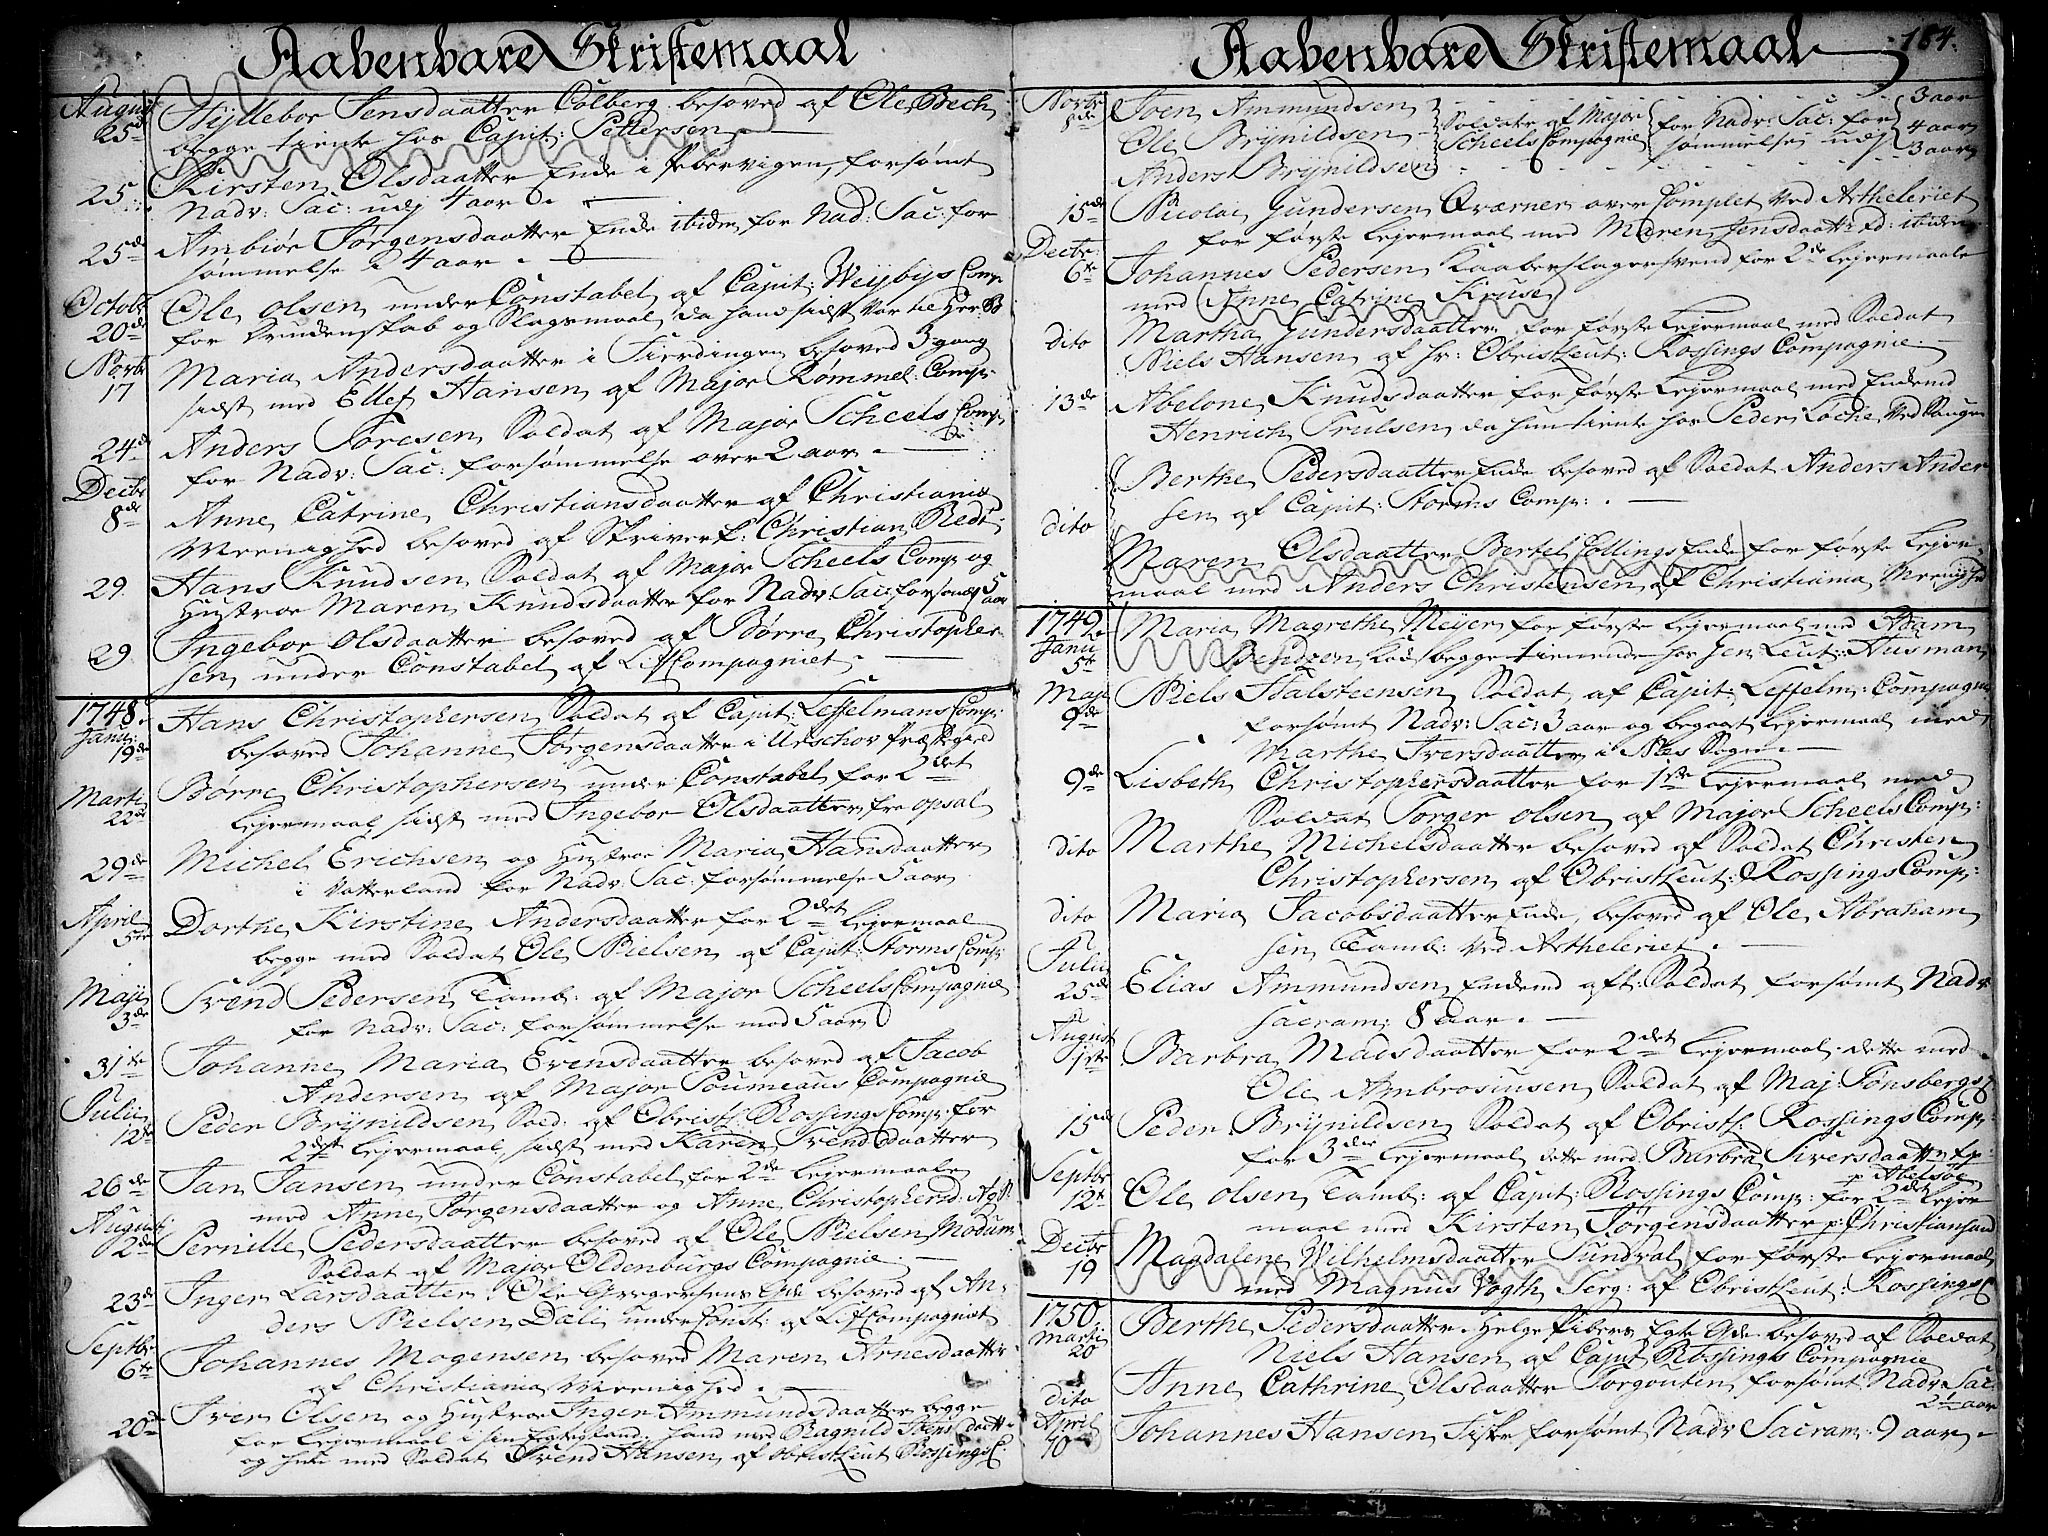 Aabenbare Skriftemaal
August 25de Hyllebor Jensdaatter Colberg besoved af Ole Bech
begge tiente hos Capit: Pettersen
25 Kirsten Olsdaatter Enke i Pebervigen, forsømt
Nadv: Sac: udj 4 aar
25de Ambiør Jørgensdaatter Enke ibidem for Nad: Sac: for
sømmelse i 4 aar.
Octobr 20de Ole Olsen under Constabel af Capit: Weybÿs Comp:
for Drudenskab og Slagsmaal da hand sidst var til Her: B
Novbr 17 Maria Andersdaatter i Fierdingen besoved 3 gang
sidst med Ellef Hansen af Major Rømmel: Comp:
24de Anders Toresen Soldat af Major Scheels Comp:
for Nadv: Sac: forsømmelse over 2 aar.
Decbr 8de Anne Catrine Christiansdaatter af Christiania
Meenighed besoved af Skriverk: Christian Redt:
29. Hans Knudsen Soldat af Major Scheels Comp: og
Hustroe Maren Knudsdaatter for Nadv: Sac: forsøm: 5 aar
29 Ingebor Olsdaatter besoved af Børre Christopher
sen under Constabel af Lif Compagniet.
1748. Janu: 19de Hans Christophersen Soldat af Capit: Leffelmans Comp:
besoved Johanne Jørgensdaatter i Urschov Præstegield
Marti 22de Børre Christophersen under Constabel for 2det
Lejermaal, sidst med Ingebor Olsdaatter fra Opsal
29de Michel Erichsen og Hustroe Maria Hansdaatter
i Vatterland for Nadv: Sac: forsømmelse 5 aar
April 5te Dorthe Kirstine Andersdaatter for 2det Lejermaal
begge med Soldat Ole Nielsen af Capit: Storms Comp:
Maji 3de Svend Pedersen Tamb: af Major Scheels Compagnie
for Nadv: Sac: forsømmelse mod 5 aar
31te Johanne Maria Evensdaatter besoved af Jacob
Andersen af Major Poumeaus Compagnie
Julii 12te Peder Brÿnildsen Sold: af Obristl: Rossings Comp: for
2det Lejermaal, sidst med Karen Svendsdaatter
26de Jan Jansen under Constabel for 2de Lejermaale
med Anne Jørgensdaatter og Anne Christopherd:
Augusti 2de Pernille Pedersdaatter besoved af Ole Nielsen Modum
Soldat af Major Oldenburgs Compagnie
23de Inger Larsdaatter Ole Gregersens Enke besoved af An-
ders Nielsen Dæli under Const: af Lif Compagniet
Septbr 6te Johannes Mogensen besoved Maren Arnesdaatter
af Christiania Meenighed.
20de Iver Olsen og Hustroe Inger Ammundsdaatter begge
for Lejermaal i sin Egteskab, hand med Ragnild Iversdaatt:
og hun med Soldat Svend Hansen af Obristleut Rossings C:
Aabenbare Skriftemaal 184.
Novbr 8de Joen Ammundsen
Ole Brÿnildsen
Anders Brÿnildsen
Soldater af Major
Scheels Compagnie
for Nadv: Sac: for
sømmelse udj
3 aar
4 aar
3 aar
15de Nicolai Gundersen Qværner over Complet ved Artheleriet
for første Lejermaal med Maren Jensdaatter ibidem
Decbr: 6te Johannes Pedersen Kaaberslagersvend for 2de Lejermaale
med Anne Catrine Kruse
dito Martha Gundersdaatter for første Lejermaal med Soldat
Niels Hansen af hr: Obristleut: Rossings Compagnie.
13de Abelone Knudsdaatter for første Lejermaal med Enkemd
Henrich Trulsen da hun tiente hos Peder Loche ved Saugen
Berthe Pedersdaatter Enke besoved af Soldat Anders Ander
sen af Capit: Storms Comp:.
dito Maren Olsdaatter Bertel Collings Enke for første Lejer-
maal med Anders Christensen af Christiania Meenighed
1749. Janu 5te Maria Magrethe Meÿer for første Lejermaal med Adam
Bendzen begge tienende hos Gen: Leut: Husman
Maji 9de Niels Halsteensen Soldat af Capit: Leffelm: Compagnie
forsømt Nadv: Sac: 3 aar og begaaet Lejermaal med
Marthe Iversdaatter i Næs Sogn.
9de Lisbeth Christophersdaatter for 1ste Lejermaal med
Soldat Torger Olsen af Major Scheels Comp:
dito Marthe Michelsdaatter besoved af Soldat Christen
Christophersen af Obristleut: Rossings Comp:
dito Maria Jacobsdaatter Enke, besoved af Ole Abraham
sen Tamb: ved Artheleriet.
Julii 25de Elias Ammundsen Enkemd aft: Soldat forsømt Nadv:
Sacram: 8 aar.
August 1ste Barbra Madsdaatter for 2det Lejermaal dette med
Ole Ambrosiusen Soldat af Maj: Tønsbergs C
15de Peder Brÿnildsen Soldat af Obristl: Rossings Comp:
for 3die Lejermaal dette med Barbra Siversdaatter
p Abelsøe
Septbr 12te Ole Olsen Tamb: af Capit: Rossings Comp: for 2det Lejer
maal med Kirsten Jørgensdaatter p: Christiansand
Decbr 19 Magdalene Wilhelmsdaatter Sundval for første Lejermaal
med Magnus Vogth Serg: af Obristleut: Rossings C
1750. Marti 20 Berthe Pedersdaatter Helge Pibers Egte Qde besoved af Soldat
Niels Hansen af Capit Rossings Compagnie
dito Anne Cathrine Olsdaatter Torgouten forsømt Nadv: Sac:
2½ aar
April 10 Johannes Hansen Fiske forsømt Nadv Sacram: 9 aar